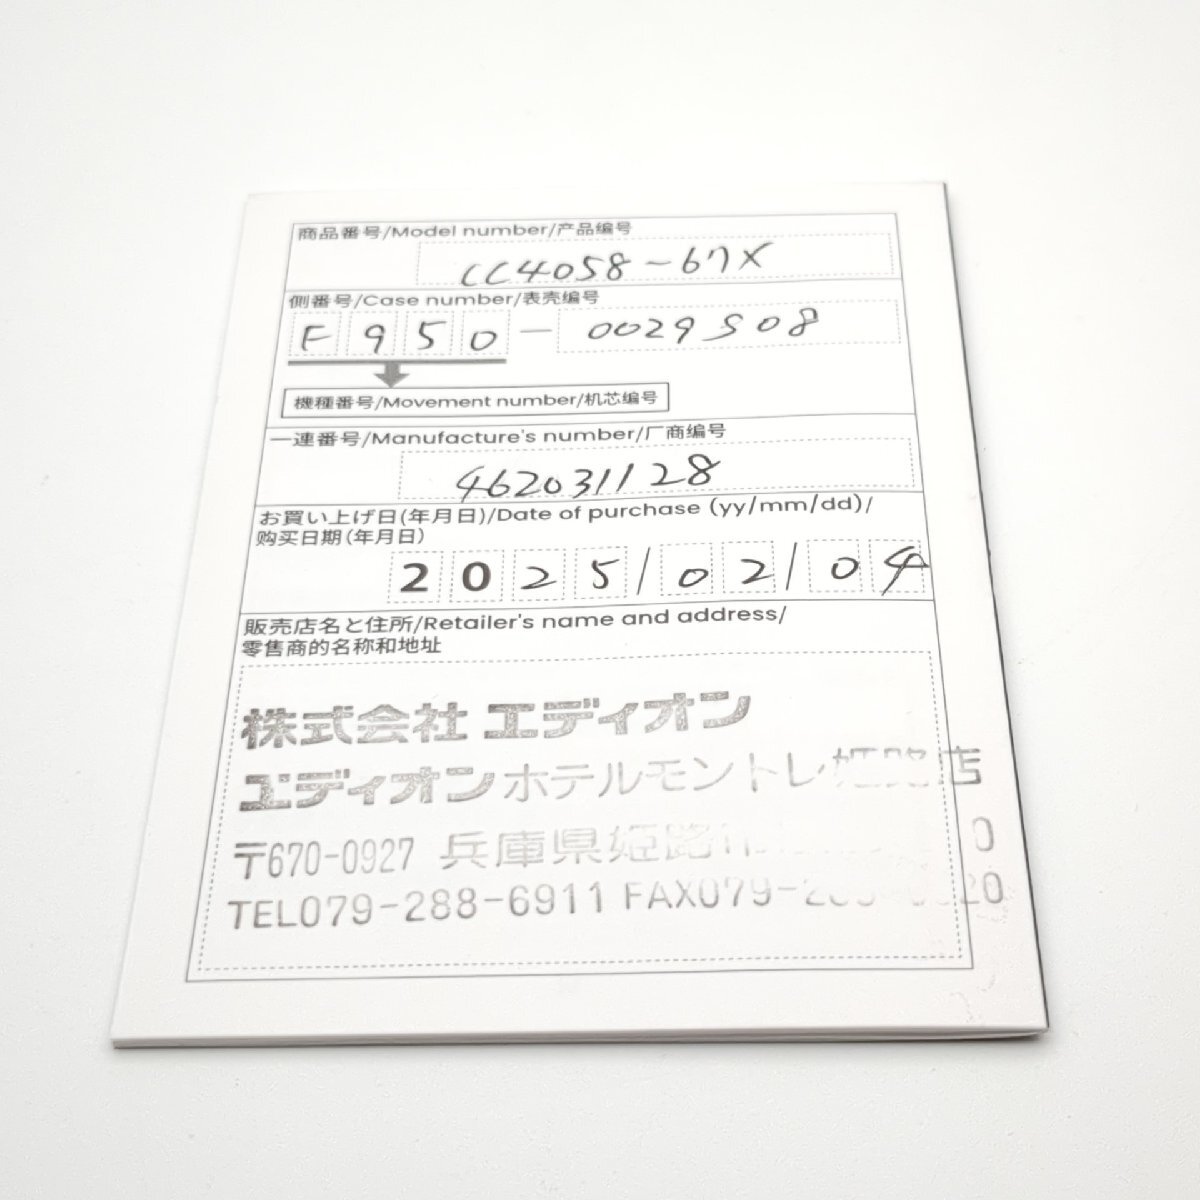 商品番号/Model number/产品编号
CC4058-67X
側番号/Case number/表壳编号
F950-0029508
機種番号/Movement number/机芯编号
一連番号/Manufacture's number/厂商编号
462031128
お買い上げ日(年月日)/Date of purchase (yy/mm/dd)/
购买日期(年月日)
2025/02/04
販売店名と住所/Retailer's name and address/
零售商的名称和地址
株式会社 エディオン
エディオンホテルモントレ姫路店
〒670-0927 兵庫県姫路市
TEL079-288-6911 FAX079-